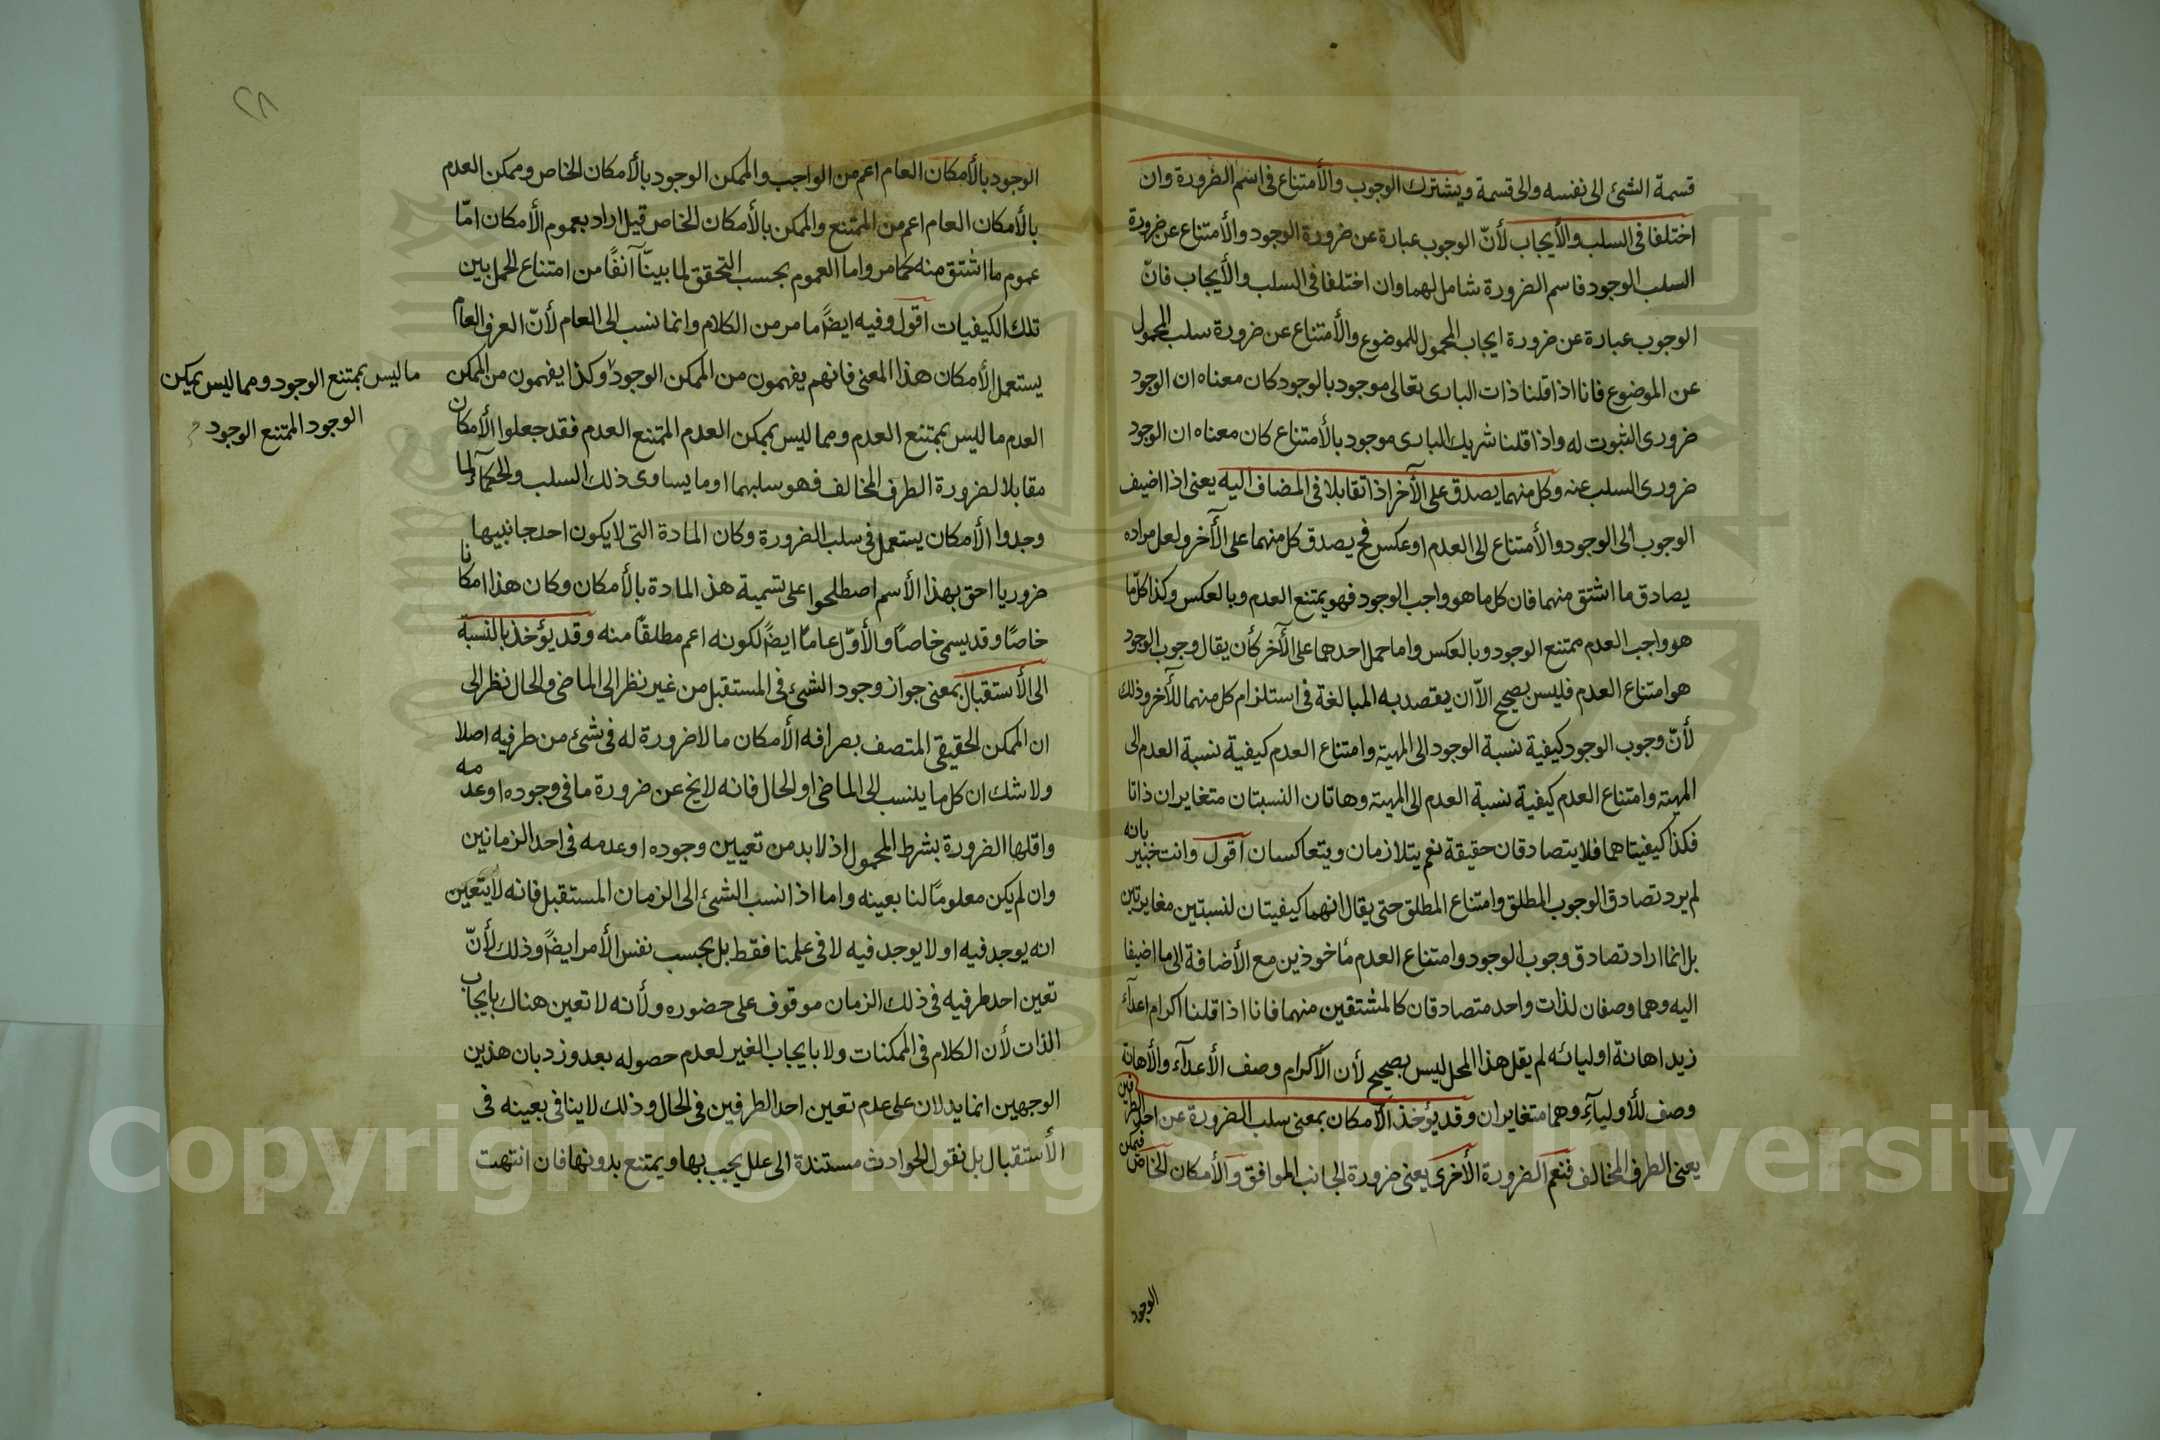 قسمة الشئ الى نفسه والى قسمة ويشترك الوجوب والأمتناع فى اسم الضرورة وان
اختلفا فى السلب والأيجاب لأنّ الوجوب عبارة عن ضرورة الوجود والأمتناع عن ضرورة
السلب الوجود فاسم الضرورة شامل لهما وان اختلفا فى السلب والأيجاب فانّ
الوجوب عبارة عن ضرورة ايجاب المحمول للموضوع والأمتناع عن ضرورة سلب المحمول
عن الموضوع فانا اذا قلنا ذات البارى تعالى موجود بالوجود كان معناه ان الوجود
ضرورى الثبوت له واذا قلنا شريك البارى موجود بالأمتناع كان معناه ان الوجود
ضرورى السلب عنه وكل منهما يصدق على الآخر اذا تقابلا فى المضاف اليه يعنى اذا اضيف
الوجوب الى الوجود والأمتناع الى العدم او عكس فح يصدق كل منهما على الآخر ولعل مراده
يصادق ما اشتق منهما فان كل ما هو واجب الوجود فهو يمتنع العدم وبالعكس وكذا كلّما
هو واجب العدم ممتنع الوجود وبالعكس واما حمل احدهما على الآخر كأن يقال وجوب الوجود
هو امتناع العدم فليس بصحيح الاّ ان يقصد به المبالغة فى استلزام كل منهما للآخر وذلك
لأنّ وجوب الوجود كيفية نسبة الوجود الى المهية وامتناع العدم كيفية نسبة العدم الى
المهية وامتناع العدم كيفية نسبة العدم الى المهية وهاتان النسبتان متغايران ذاتا
فكذا كيفيتاهما فلا يتصادقان حقيقة نعم يتلازمان ويتعاكسان اقول وانت خبير بانه
لم يرد تصادق الوجوب المطلق وامتناع المطلق حتى يقال انهما كيفيتان لنسبتين مغايرتين
بل انما اراد تصادق وجوب الوجود وامتناع العدم مأخوذين مع الأضافة الى ما اضيفا
اليه وهما وصفان لذات واحد متصادقان كالمشتقين منهما فانا اذا قلنا اكرام اعدآء
زيد اهانة اوليائه لم يقل هذا المحل ليس بصحيح لأن الأكرام وصف الأعدآء والأهانة
وصف للأوليآء وهما متغايران وقد يؤخذ الأمكان بمعنى سلب الضرورة عن احد الطرفين
يعنى الطرف المخالف فنعم الضرورة الأخرى يعنى ضرورة الجانب الموافق والأمكان الخاص فيمكن
الوجود
٢٨
الوجود بالأمكان العام اعم من الواجب والممكن الوجود بالأمكان الخاص وممكن العدم
بالأمكان العام اعم من الممتنع والممكن بالأمكان الخاص قيل اراد بعموم الأمكان امّا
عموم ما اشتق منه كما مر واما العموم بحسب التحقق لما بينّا آنفًا من امتناع الحمل بين
تلك الكيفيات اقول وفيه ايضًا ما مر من الكلام وانما نسب الى العام لأنّ العرف العام
يستعمل الأمكان هذا المعنى فانهم يفهمون من الممكن الوجود وكذا يفهمون من الممكن
العدم ما ليس بممتنع العدم ومما ليس بممكن العدم الممتنع العدم فقد جعلوا الأمكان
مقابلا لضرورة الطرف المخالف فهو سلبهما او ما يساوى ذلك السلب والحكمآء لما
وجدوا الأمكان يستعمل فى سلب الضرورة وكان المادة التى لا يكون احد جانبيها
ضروريا احق بهذا الأسم اصطلحوا على تسمية هذ المادة بالأمكان وكان هذا امكانا
خاصًا وقد يسمى خاصًا والأوّل عامًا ايضًا لكونه اعم مطلقًا منه وقد يؤخذ بالنسبة
الى الأستقبال بمعنى جواز وجود الشئ فى المستقبل من غير نظر الى الماضى والحال نظر الى
ان الممكن الحقيقى المتصف بصرافه الأمكان ما لا ضرورة له فى شئ من طرفيه اصلا
ولا شك ان كل ما ينسب الى الماضى او الحال فانه لا يخ عن ضرورة ما فى وجوده او عدمه
واقلها الضرورة بشرط المحمول اذ لا بد من تعيين وجوده او عدمه فى احد الزمانين
وان لم يكن معلومًا لنا بعينه واما اذا نسب الشئ الى الزمان المستقبل فانه لا يتعين
انه يوجد فيه او لا يوجد فيه لا فى علمنا فقط بل بحسب نفس الأمر ايضًا وذلك لأنّ
تعين احد طرفيه فى ذلك الزمان موقوف على حضوره ولأنه لا تعين هناك بايجاب
الذات لأن الكلام فى الممكنات ولا بايجاب الغير لعدم حصوله بعد وزد بان هذين
الوجهين انما يدلان على عدم تعين احد الطرفين فى الحال وذلك لا ينافى بعينه فى
الأستقبال بل نقول الحوادث مستندة الى علل يجب بها ويمتنع بدونها فان انتهت
ما ليس بممتنع الوجود ومما ليس بممكن
الوجود الممتنع الوجود
Copyright © King Saud University